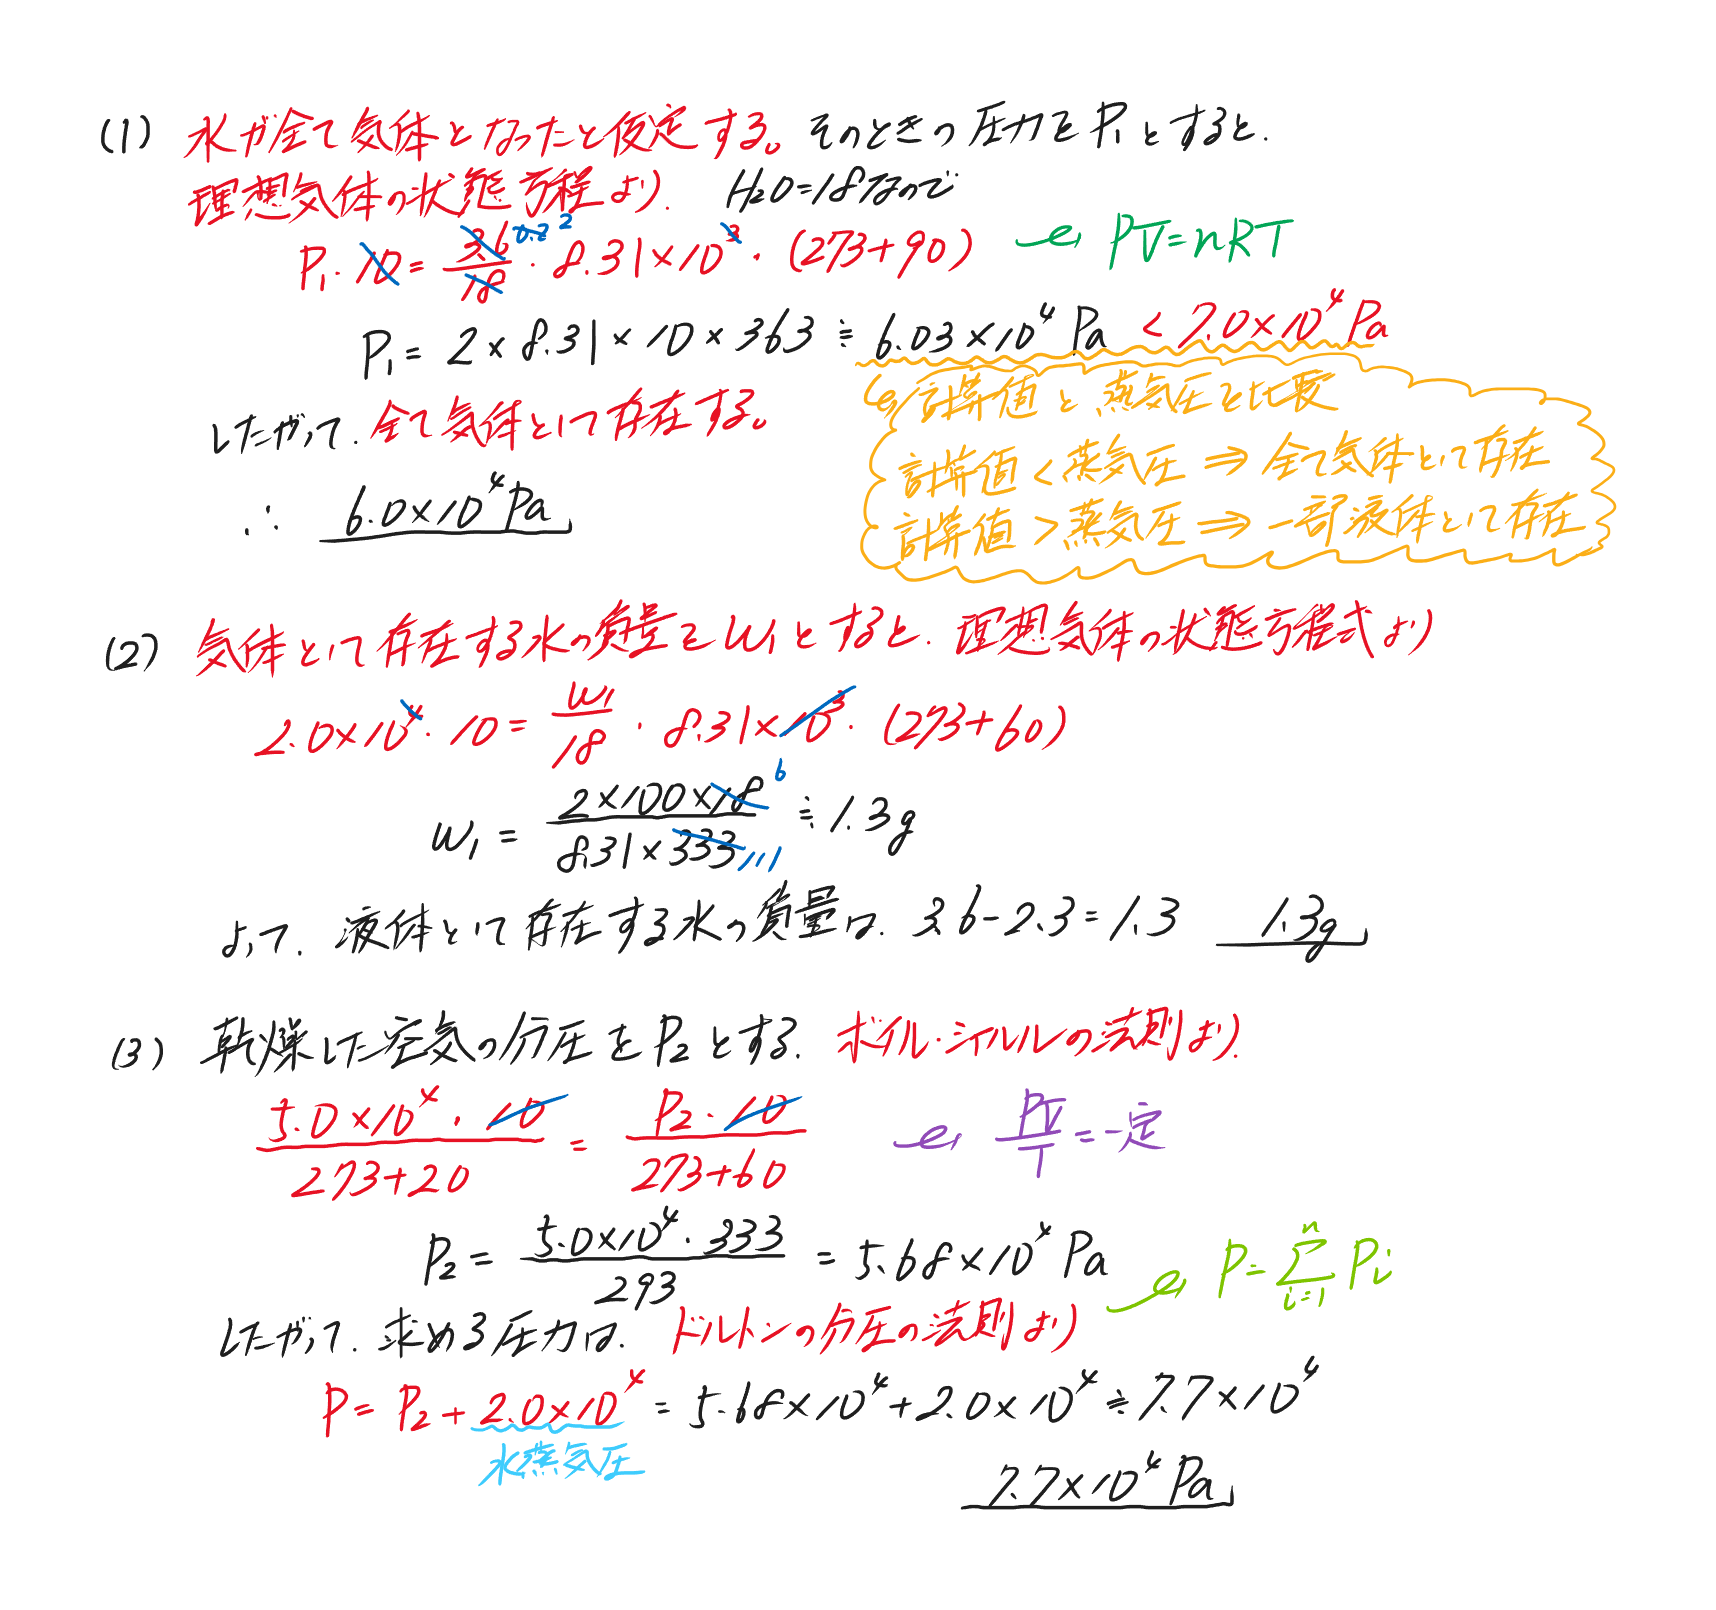 (1) 水が全て気体となったと仮定する。そのときの圧力をP₁とすると.
理想気体の状態方程より. H₂O=18なので
P₁・10 = 3.6/18 0.2 2 ・8.31×10³・(273+90) PV=nRT
P₁ = 2×8.31×10×363 ≒ 6.03×10⁴ Pa < 7.0×10⁴ Pa
計算値と蒸気圧を比較
したがって. 全て気体として存在する。
計算値<蒸気圧 ⇒ 全て気体として存在
∴ 6.0×10⁴Pa
計算値>蒸気圧 ⇒ 一部液体として存在
(2) 気体として存在する水の質量をw₁とすると. 理想気体の状態方程式より
2.0×10⁴・10 = w₁/18 ・8.31×10³・(273+60)
w₁ = 2×100×18 6/8.31×333 111 ≒ 1.3g
よって. 液体として存在する水の質量は. 3.6-2.3=1.3 1.3g
(3) 乾燥した空気の分圧をP₂とする. ボイル・シャルルの法則より.
5.0×10⁴・10/273+20 = P₂・10/273+60 PV/T=一定
P₂ = 5.0×10⁴・333/293 = 5.68×10⁴ Pa P=Σⁿᵢ₌₁ Pᵢ
したがって. 求める圧力は. ドルトンの分圧の法則より
P = P₂ + 2.0×10⁴ = 5.68×10⁴+2.0×10⁴ ≒ 7.7×10⁴
水蒸気圧
7.7×10⁴ Pa